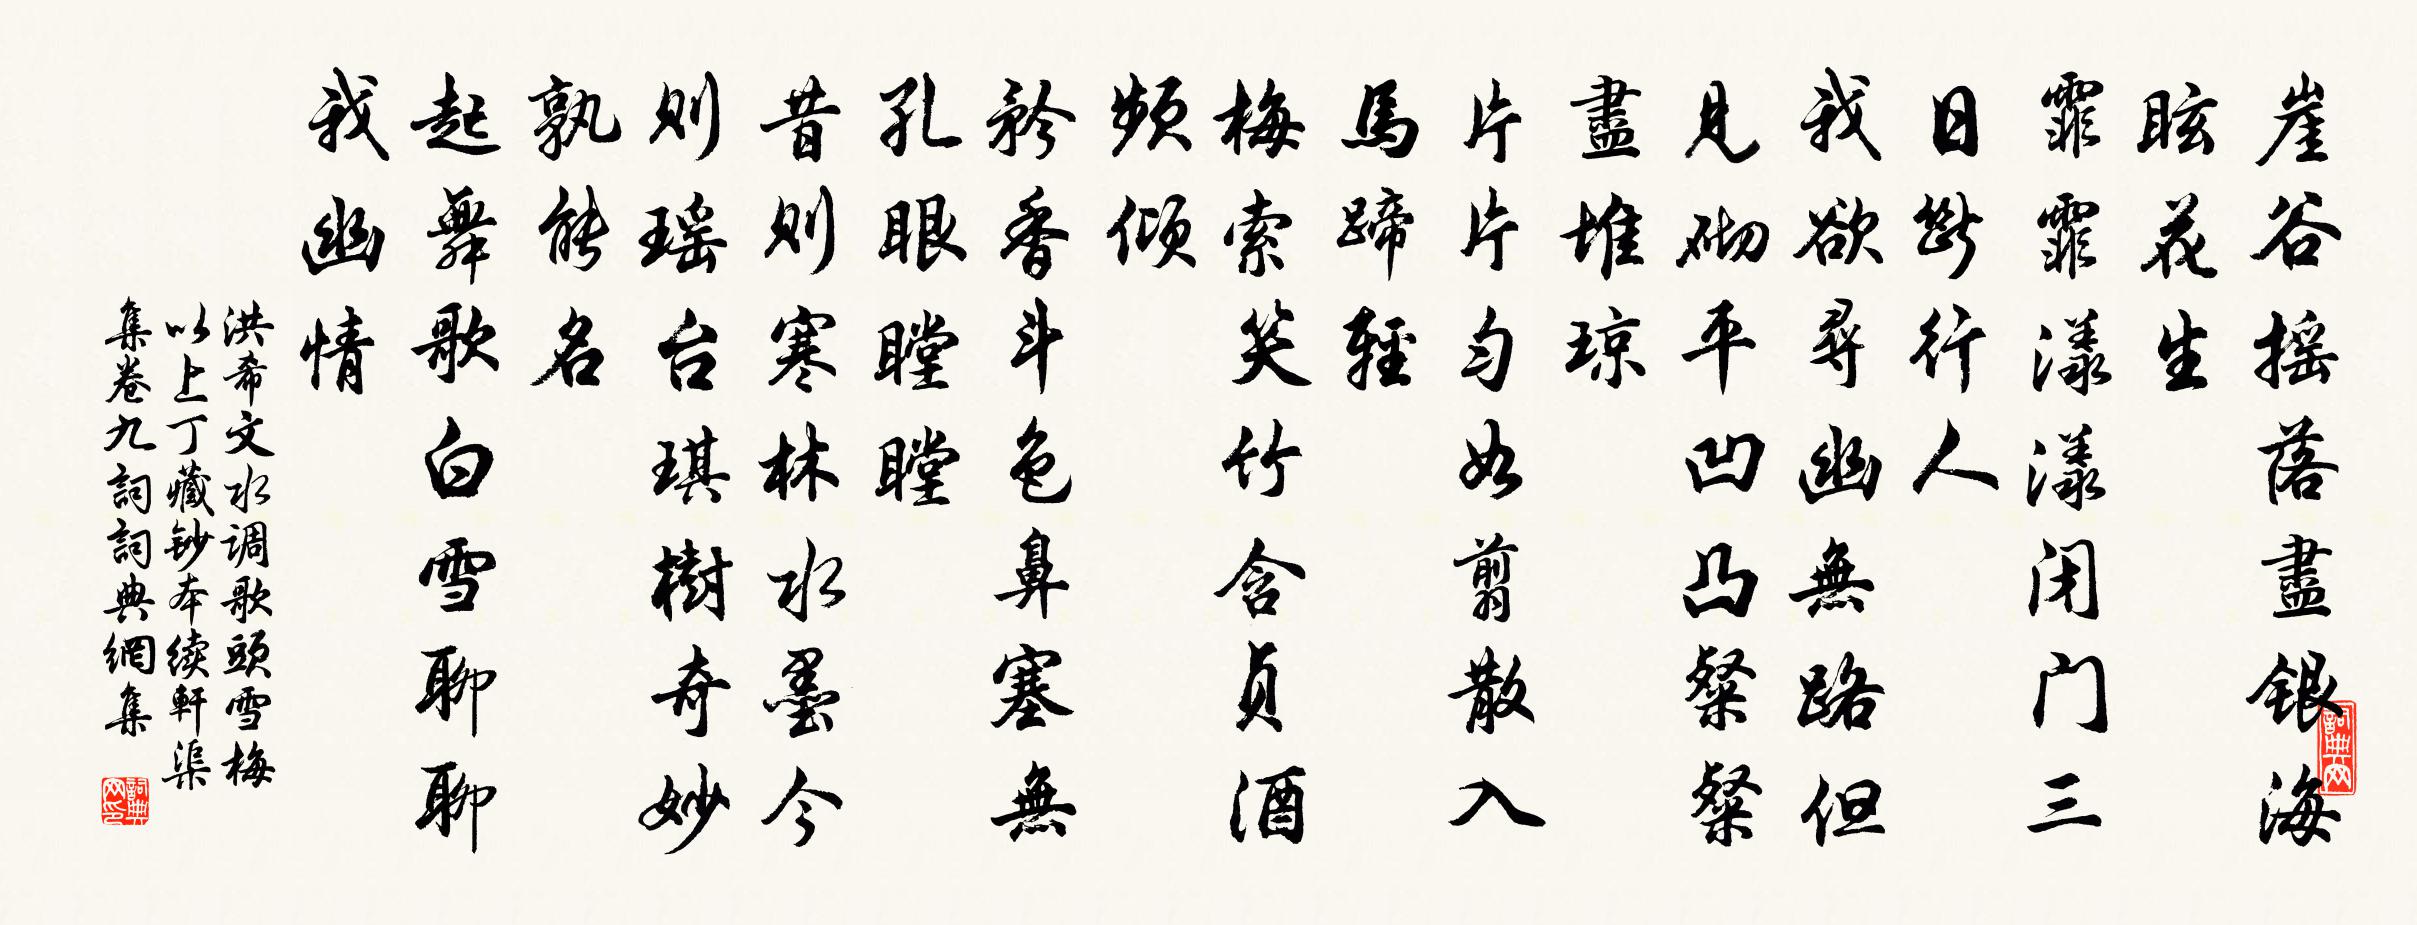 崖谷摇落盡银海
眩花生
霏霏漾漾闭门三
日斷行人
我欲尋幽無路但
見砌平凹凸粲粲
盡堆琼
片片匀如剪散入
馬蹄輕
梅索笑竹含贞酒
频倾
矜香斗色鼻塞無
孔眼瞠瞠
昔则寒林水墨今
则瑶台琪樹奇妙
孰能名
起舞歌白雪聊聊
我幽情
洪希文水调歌頭雪梅
以上丁藏钞本续軒渠
集卷九詞詞典網集
詞典网
詞典网印